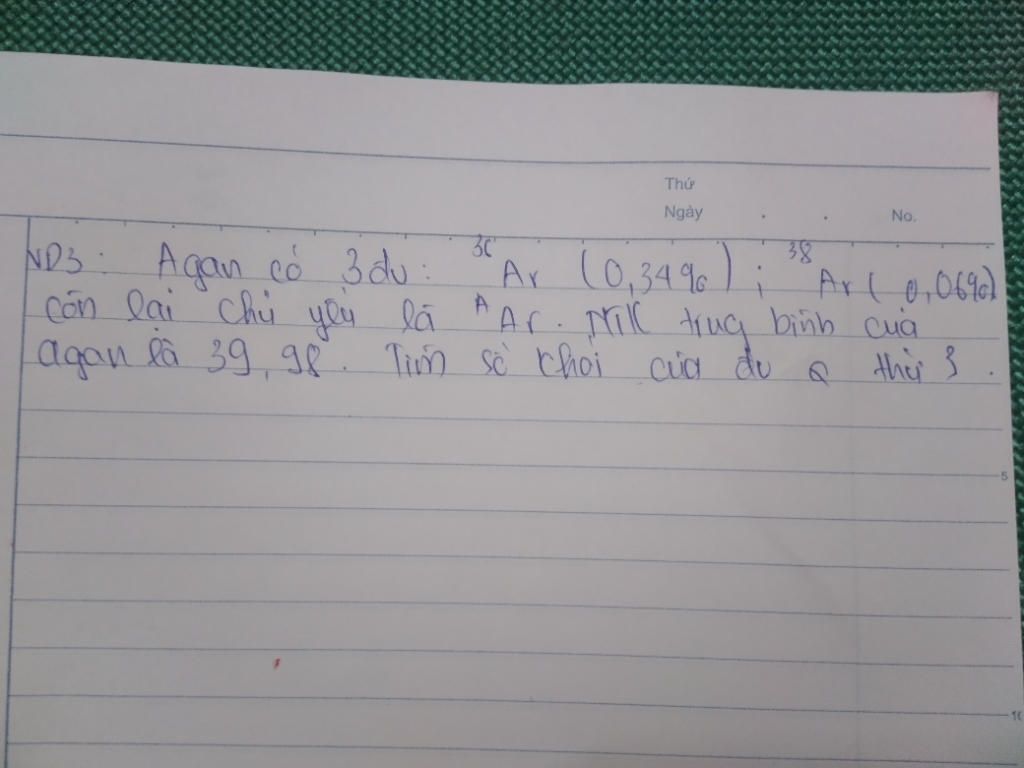 Thứ
Ngày . . No.
VD3: Agan có 3 đv: ³⁶Ar (0,34%); ³⁸Ar (0,06%)
còn lại chủ yếu là ᴬAr. NTK trug bình của
agan là 39,98. Tìm số khối của đv thứ 3.
5
10